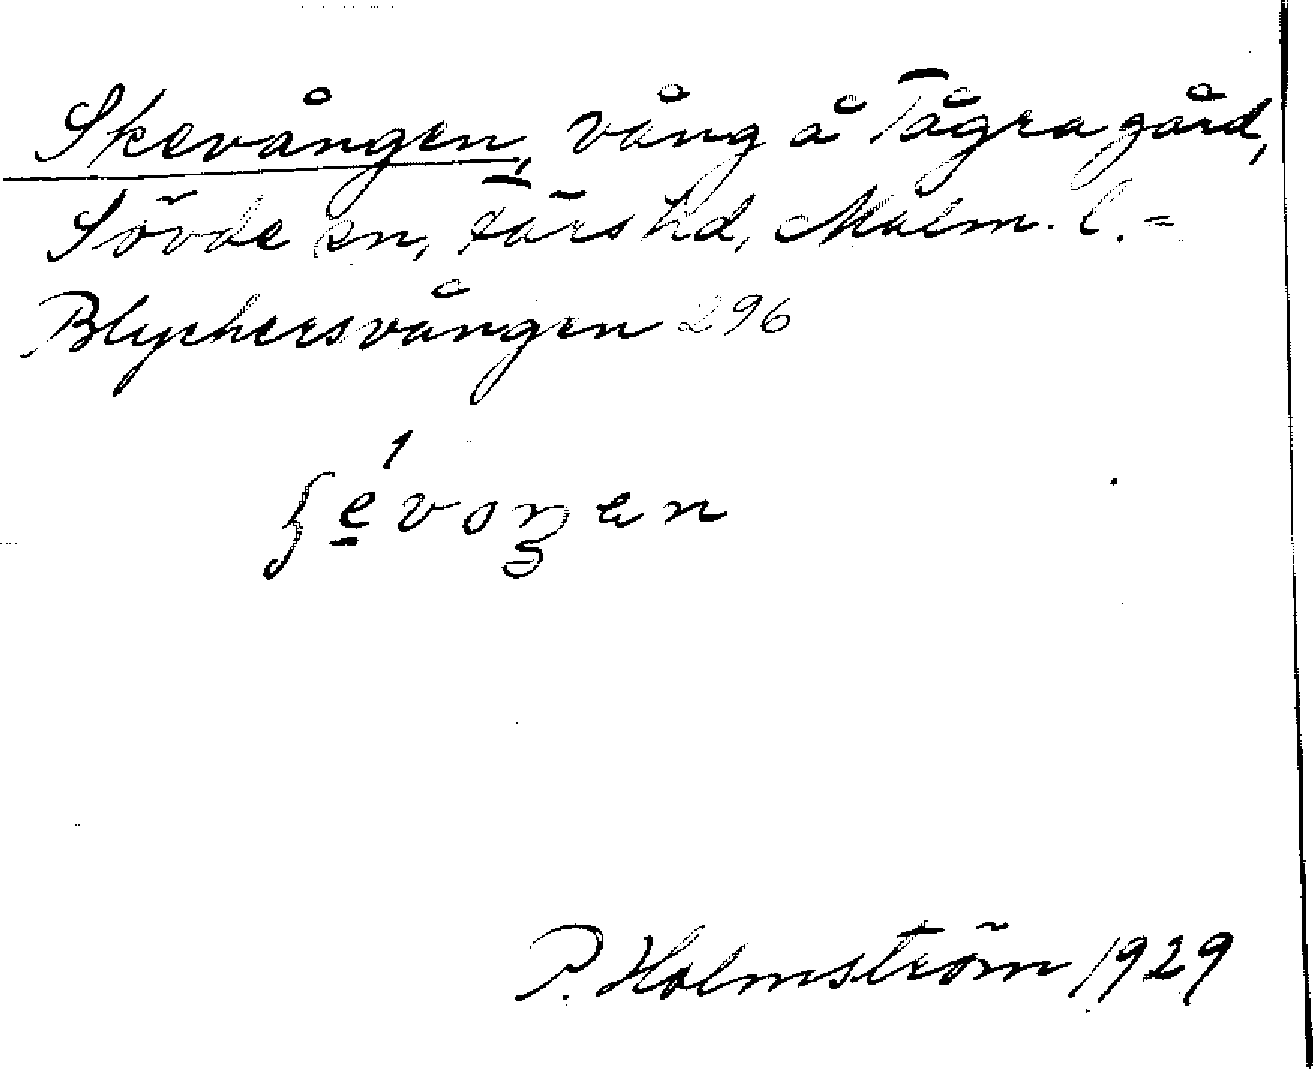 Skevången, vång å Tågra gård,
Sövde sn, Färs hd, Malm. l. =
Blychersvången 296
P. Holmström 1929